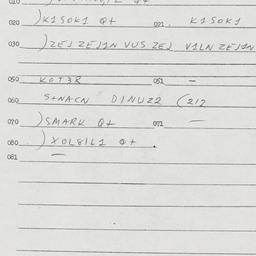 020 )K1SOK1 Q+ 021. K1SOK1
030 )ZEJ ZEJ1N VUS ZEJ V1LN ZEJ1N
050 KOT3R 051 —
060 S+NACN D1NUZ2 (212
070 )SMARK Q+ 071 —
080 )XOL81L1 Q+
081 —